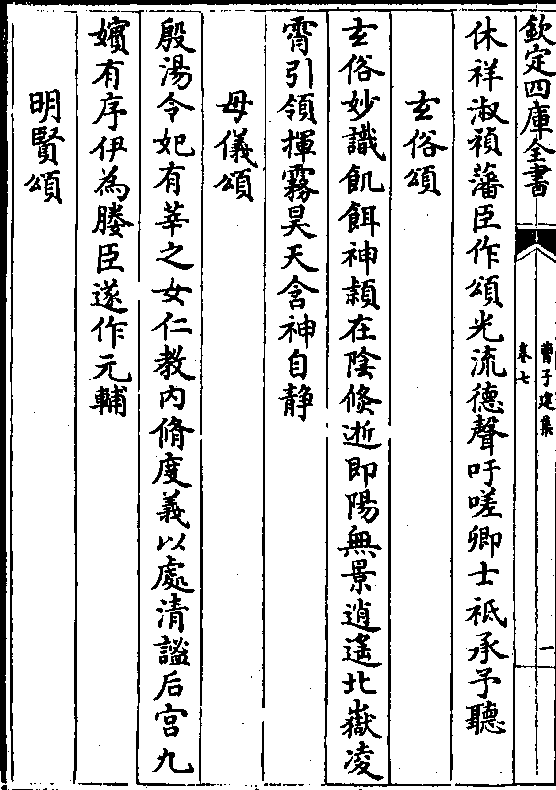 欽定四庫全書
曹子建集
卷七
一
休祥淑禎藩臣作頌光流德聲吁嗟卿士祗承予聽
玄俗頌
玄俗妙識飢餌神頴在陰倐逝即陽無景逍遙北嶽凌
霄引領揮霧昊天含神自静
母儀頌
殷湯令妃有莘之女仁教内脩度義以處清謐后宫九
嬪有序伊為媵臣遂作元輔
明賢頌